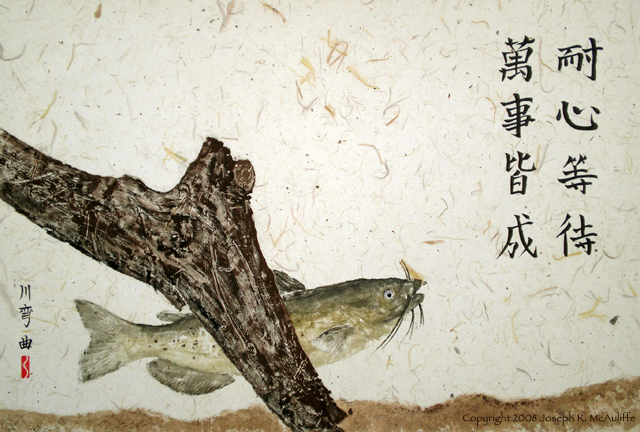 耐心等待
萬事皆成
川彎曲
Copyright 2008 Joseph R. McAuliffe